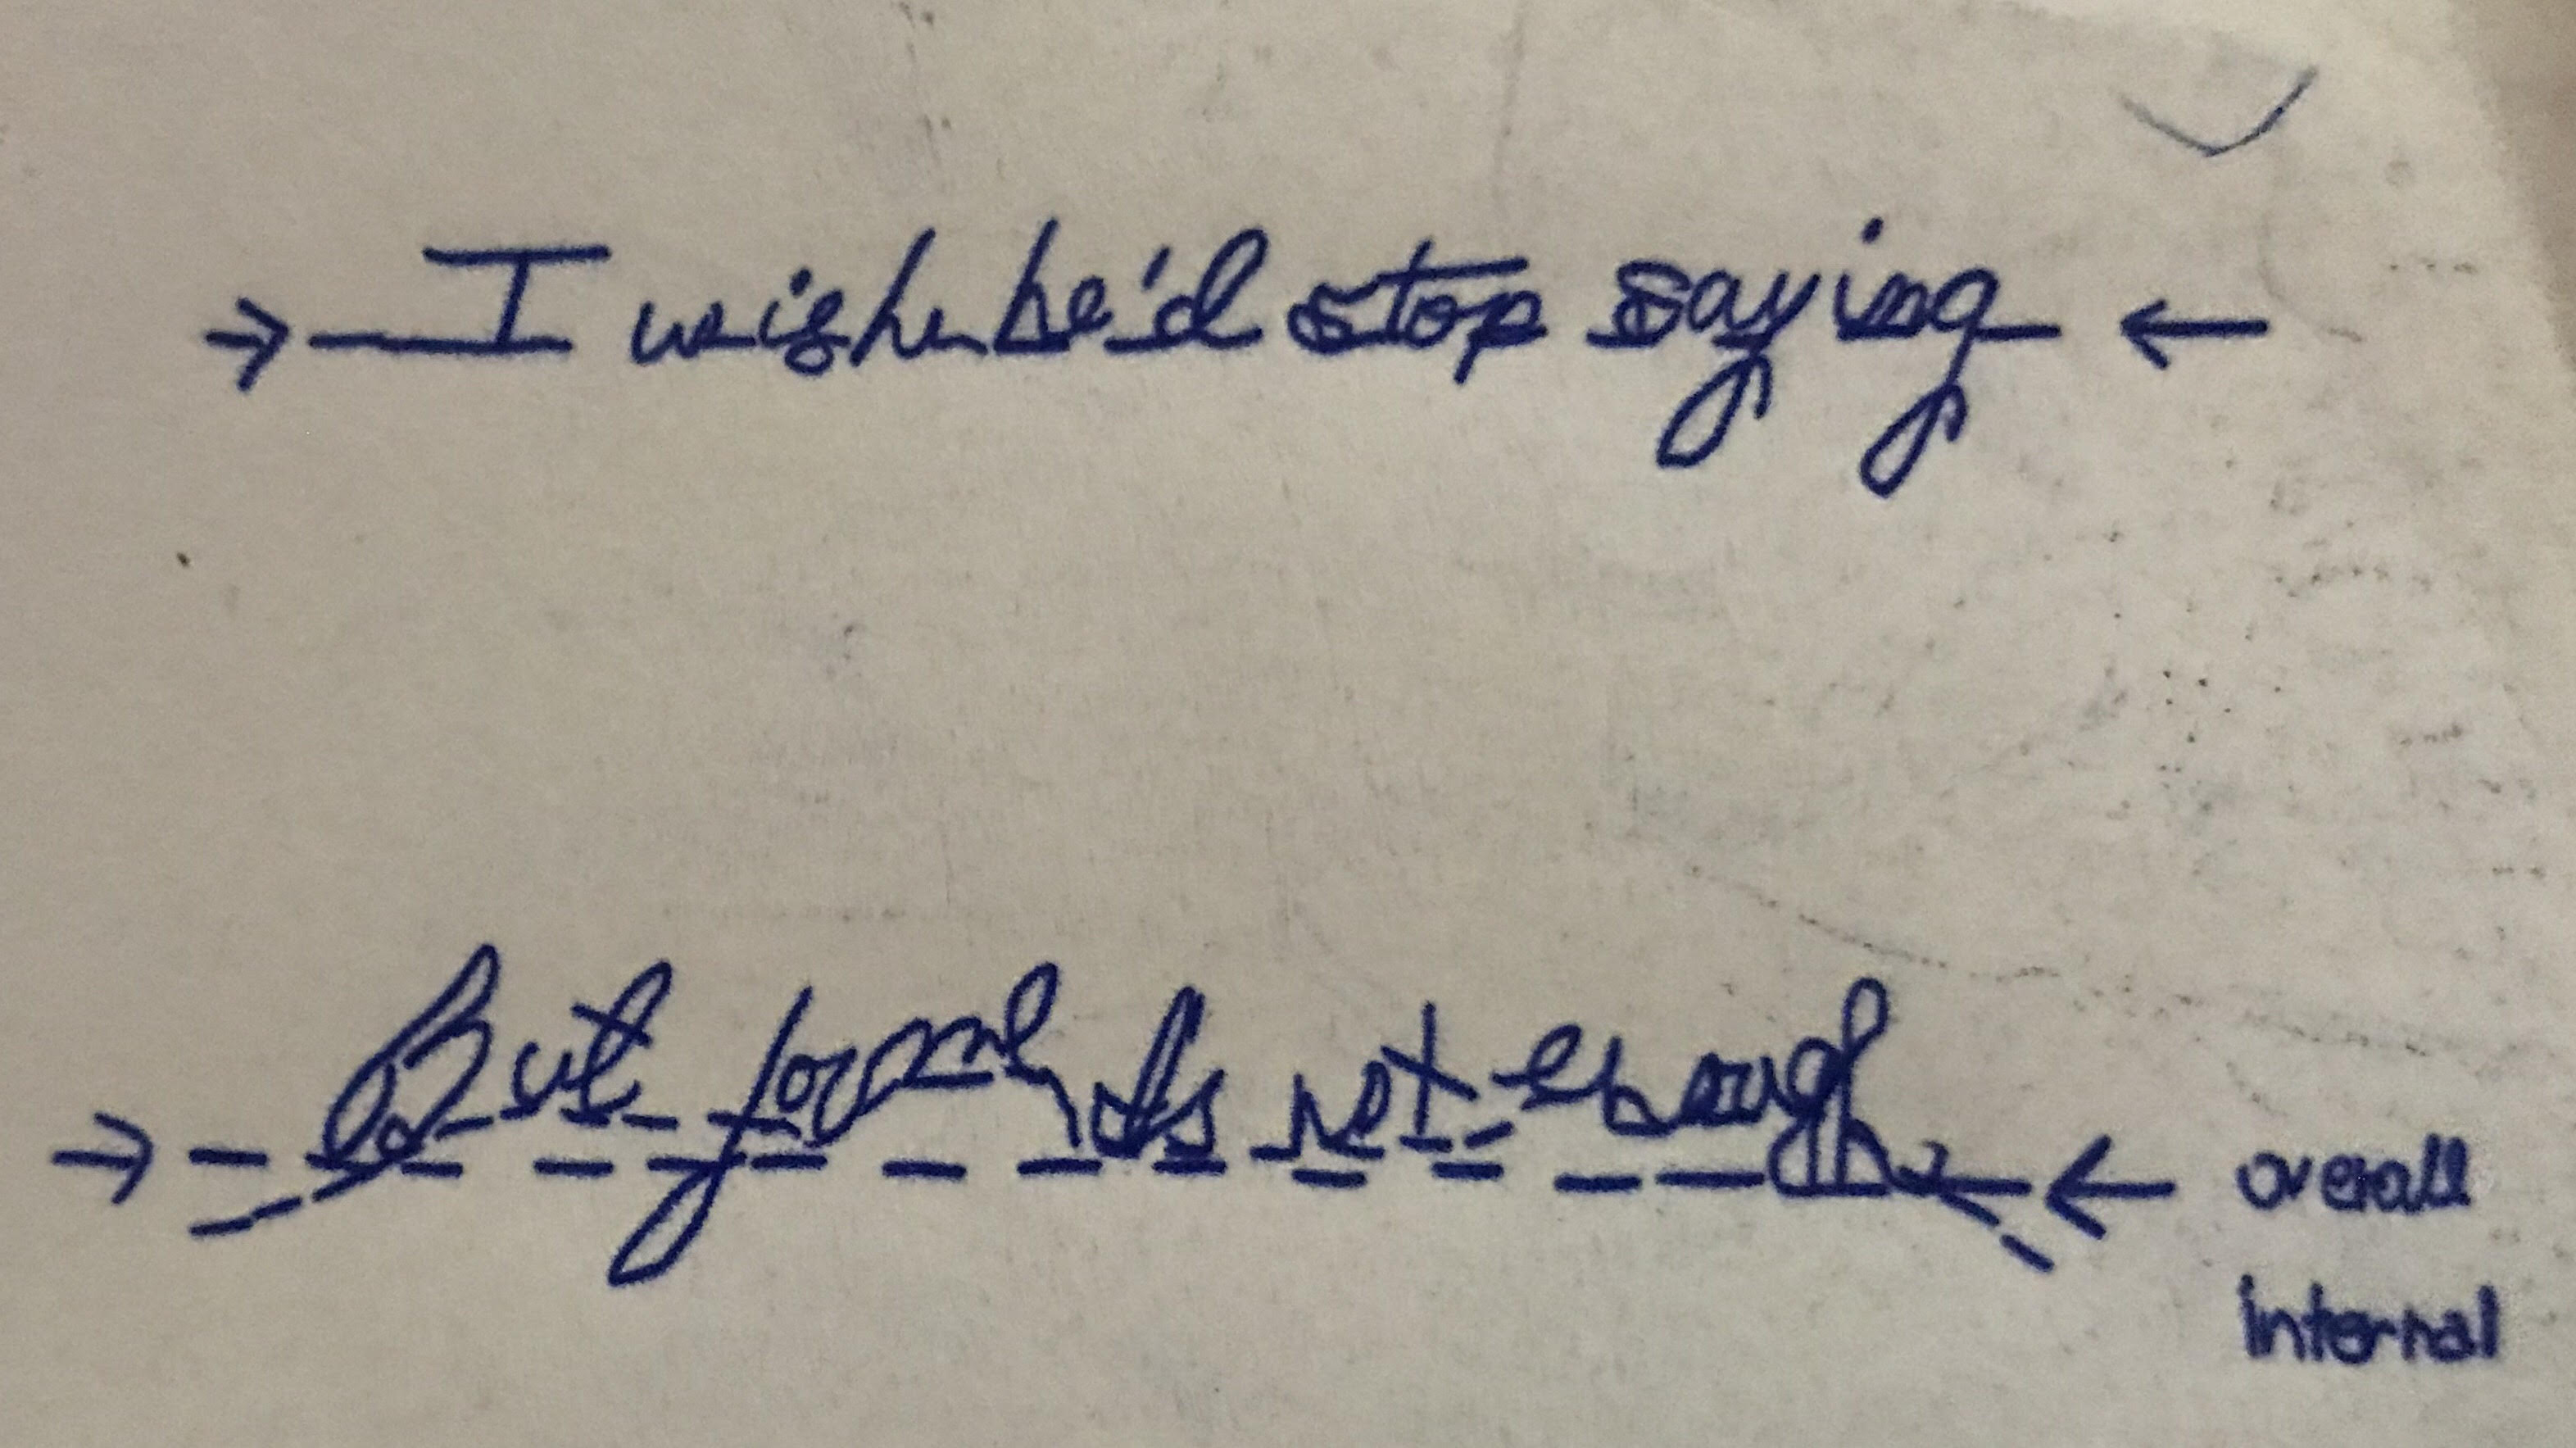 I wish he'd stop saying
But formal is not enough
overall
internal